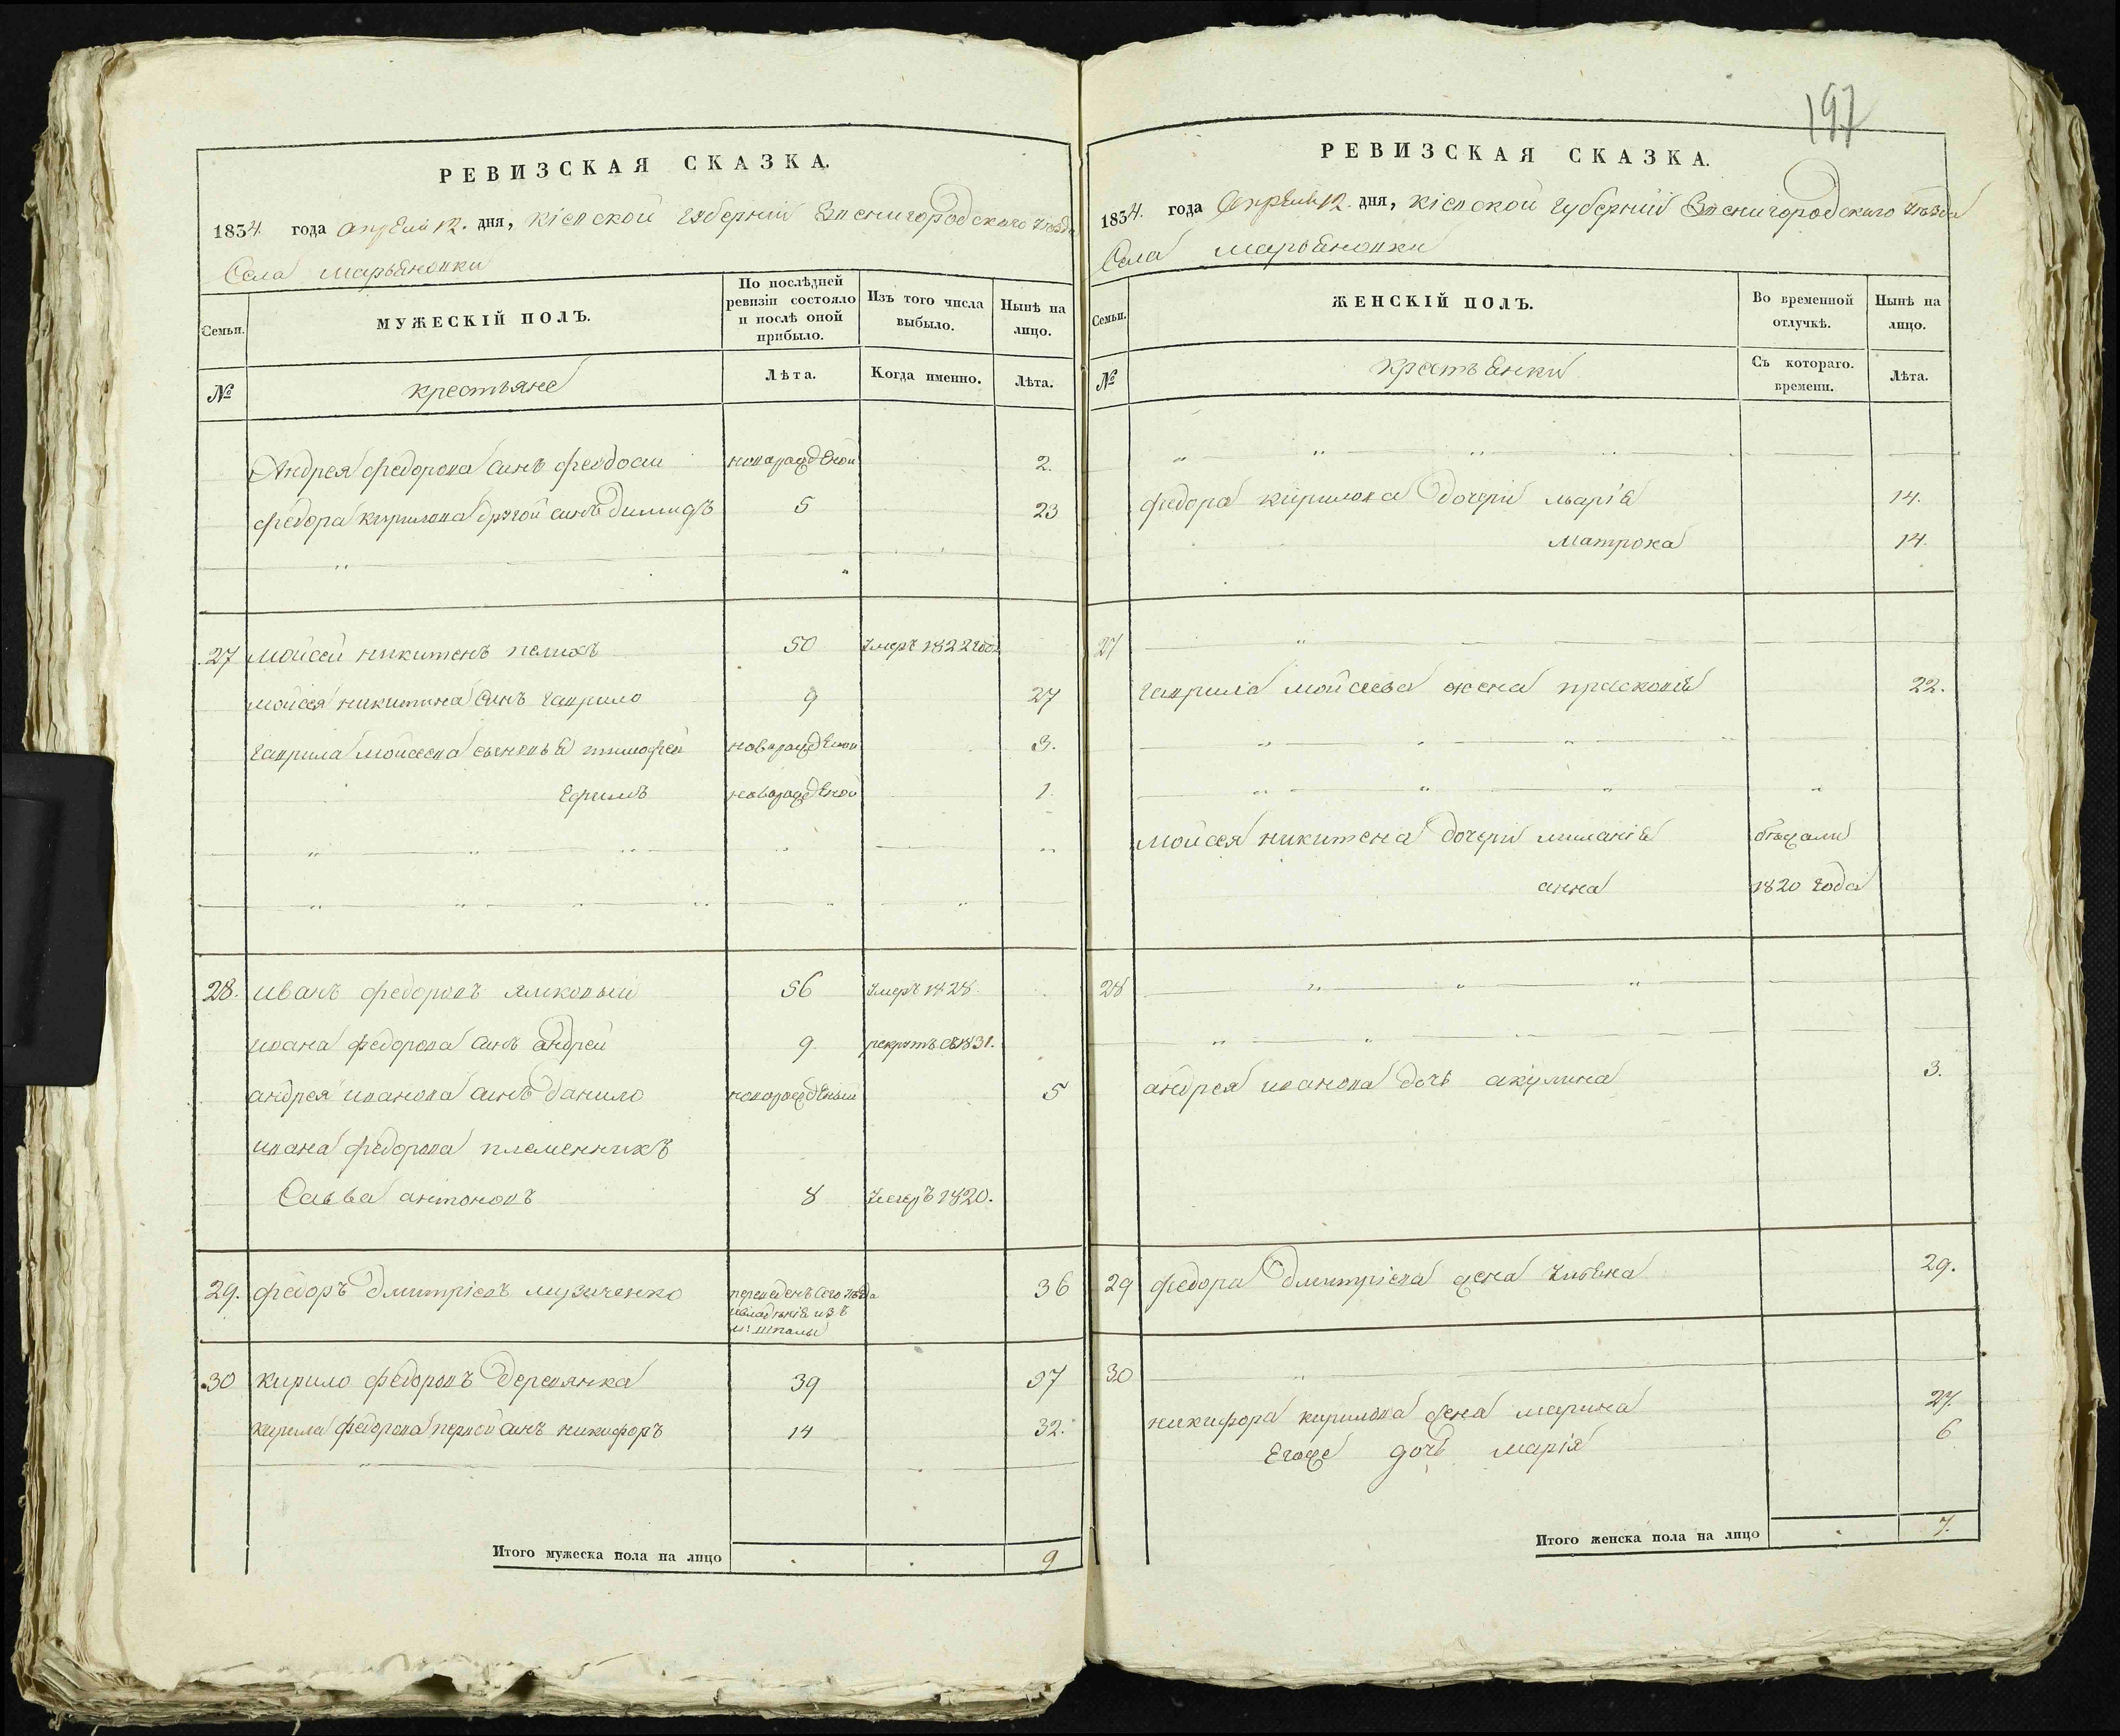 197
РЕВИЗСКАЯ СКАЗКА.
1834. года Апрѣля 12. дня, Кіевской губерніи Звенигородскаго уѣзда
Села Марьяновки
Семьи.
МУЖЕСКІЙ ПОЛЪ.
По послѣдней ревизіи состояло и послѣ оной прибыло.
Изъ того числа выбыло.
Нынѣ на лицо.
№
крестьяне
Лѣта.
Когда именно.
Лѣта.
Андрея федорова синъ феодосии новарожденой 2.
федора кирилова другой синъ 5 23
27 мойсей никитенъ пелихъ 50 умеръ 1822 года
мойсея никитина синъ гаврило 9 27
гаврила мойсеева сыновья тимофей новарожденой 3.
Ефимъ новарожденой 1.
28. иванъ федоровъ ямковый 56 умеръ 1828.
ивана федорова синъ андрей 9 рекрутъ 1831.
андрея иванова синъ данило новарожденый 5
ивана федорова племенникъ
Савва антоновъ 8 умеръ 1820.
29. федоръ дмитріевъ музиченко переведенъ сего уѣзда
изъ
м: шполы 36
30 кирило федоровъ деревянка 39 57
кирила федорова первой синъ никифоръ 14 32.
Итого мужеска пола на лицо 9
РЕВИЗСКАЯ СКАЗКА.
1834. года Апрѣля 12. дня, Кіевской губерніи Звенигородскаго уѣзда
Села Марьяновки
Семьи.
ЖЕНСКІЙ ПОЛЪ.
Во временной отлучкѣ.
Нынѣ на лицо.
№
крестьянки
Съ котораго. времени.
Лѣта.
федора кирилова дочери марія 14.
матрона 14.
27
гаврила мойсеева жена прасковія 22.
мойсея никитена дочери миланія бѣжали
анна 1820 года
28
андрея иванова дочь акулина 3.
29 федора дмитріева жена ульяна 29.
30
никифора кирилова жена марина 27.
Егоже дочь марія 6
Итого женска пола на лицо 7.